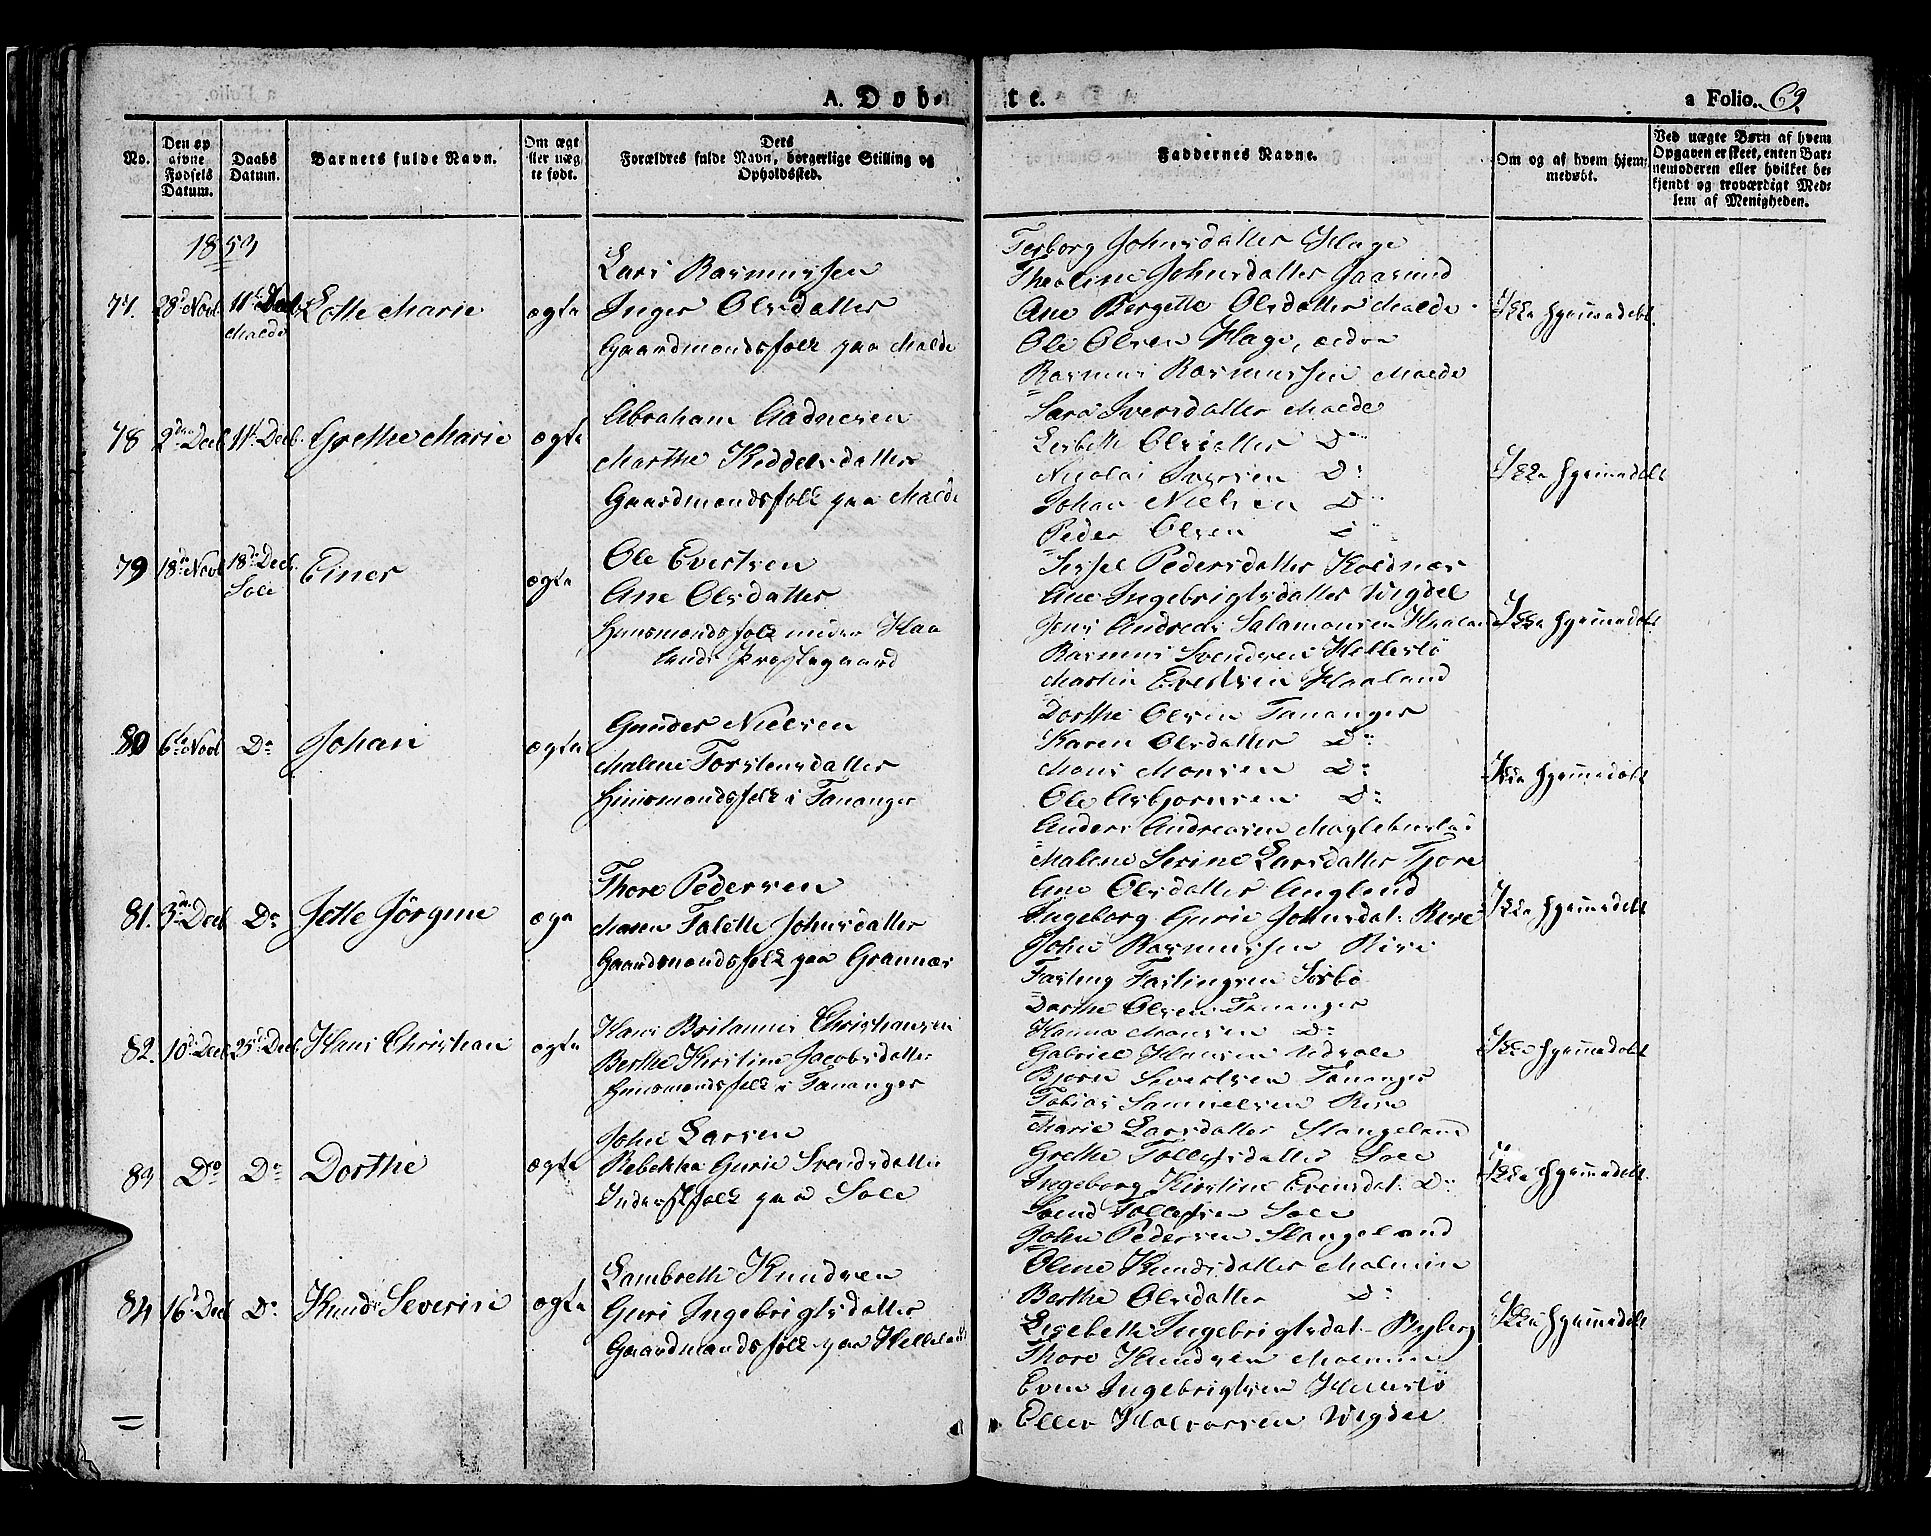 A. Døb-
te.
a Folio. 69.
No.
Den op
givne
Fødsels
Datum.
Daabs
Datum.
Barnets fulde Navn.
Om ægt
eller uæg
te født.
Dets
Forældres fulde Navn, borgerlige Stilling og
Opholdssted.
Faddernes Navne.
Om og af hvem hjem-
medøbt.
Ved uægte Børn af hvem
Opgaven er skeet, enten Bar-
nemoderen eller hvilket be-
kjendt og troværdigt Med-
lem af Menigheden.
1853
77. 28de Novb 11te Decb Lotte Marie ægte
Malde
Lars Rasmussen
Inger Olsdatter
Gaardmandsfolk paa Malde
Johnsdatter Hage
Theoline Johnsdatter Jaasund
Ane Bergette Olsdatter Malde
Ole Olsen Hage, ældre
Rasmus Rasmussen Malde
Ikke hjemmedøbt.
78 2den Decb 11te Decb. Grethe Marie ægte
Abraham Aadnesen
Marthe Keddelsdatter
Gaardmandsfolk paa Malde
Sara Iversdatter Malde
Lisbeth Olsdatter Do
Nicolai Iversen Do
Johan Nielsen Do
Peder Olsen Do
Ikke hjemmedøbt
79 18de Novb 18de Decb. Einer ægte
Sole
Ole Evertsen
Ane Olsdatter
Huusmandsfolk under Haa
lands Præstegaard
Sissel Pedersdatter Koldnæs
Ane Ingebrigtsdatter Wigdel
Jens Andreas Salamonsen Haaland
Rasmus Svendsen Hellestø
Martin Evertsen Haaland
Ikke hjemmedøbt.
80 6te Novb Do Johan ægte
Gunder Nielsen
Malene Torstensdatter
Huusmandsfolk i Tananger
Dorthe Olsen Tananger
Karen Olsdatter Do
Mons Monsen Do
Ole Asbjørnsen Do
Anders Andreasen
Ikke hjemmedøbt
81. 3die Decb Do Jette Jörgine ægte
Thore Pedersen
Maren Talette Johnsdatter
Gaardmandsfolk paa Grannæs
Malene Serine Larsdatter Tjore
Ane Olsdatter Angland
Ingeborg Gurie Johnsdat. Risе
John Rasmussen Rise
Farting Fartingsen Sørbø
Ikke hjemmedøbt
82. 10de Decb 25de Decb. Hans Christian ægte
Hans Britanus Christiansen
Berthe Kirstine Jacobsdatter
Huusmandsfolk i Tananger
Dorthe Olsen Tananger
Hanna Monsen Do
Gabriel Hansen
Bjørn Sivertsen Tananger
Tobias Samuelsen Risе
Ikke hjemmedøbt
83 Do Do Dorthe ægte
John Larsen
Rebekka Gurie Svendsdatter
Inderstfolk paa Sole
Marie Larsdatter Stangeland
Grethe Tollefsdatter Sole
Ingeborg Kirstine Evensdat. Do
Svend Tollefsen Sole
John Pedersen Stangeland
Ikke hjemmedøbt.
84 16de Decb Do Knud Severin ægte
Lambreth Knudsen
Guri Ingebrigtsdatter
Gaardmandsfolk paa Helleland
Oline Knudsdatter Malmin
Berthe Olsdatter Do
Lisebeth Ingebrigtsdat. Byberg
Thore Knudsen Malmin
Even Ingebrigtsen Hellestø
Eller Halvorsen Wigdel
Ikke hjemmedøbt